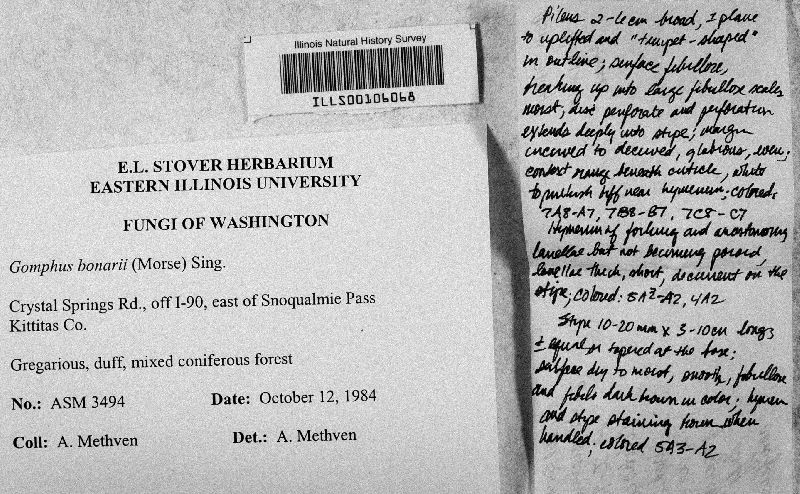 Illinois Natural History Survey
ILLS00106068
E.L. STOVER HERBARIUM
EASTERN ILLINOIS UNIVERSITY
FUNGI OF WASHINGTON
Gomphus bonarii (Morse) Sing.
Crystal Springs Rd., off I-90, east of Snoqualmie Pass
Kittitas Co.
Gregarious, duff, mixed coniferous forest
No.: ASM 3494 Date: October 12, 1984
Coll: A. Methven Det.: A. Methven
Pileus broad, ± plane
to uplifted and "trumpet-shaped"
in outline; surface fibrillose,
breaking up into large fibrillose scales,
moist; disc perforate and perforation
extends deeply into stipe; margin
incurved to decurved, glabrous, even;
context orange beneath cuticle, white
to pinkish buff near hymenium; colored:
7A8-A7, 7B8-B7, 7C8-C7
Hymenium of forking and anastomosing
lamellae but not becoming poroid,
lamellae thick, short, decurrent on the
stipe; colored: 5A2-A2, 4A2
Stipe 10-20mm x 3-10cm long;
± equal or tapered at the base;
surface dry to moist, smooth, fibrillose
and fibrils dark brown in color; hymen
and stipe staining brown when
handled; colored 5A3-A2